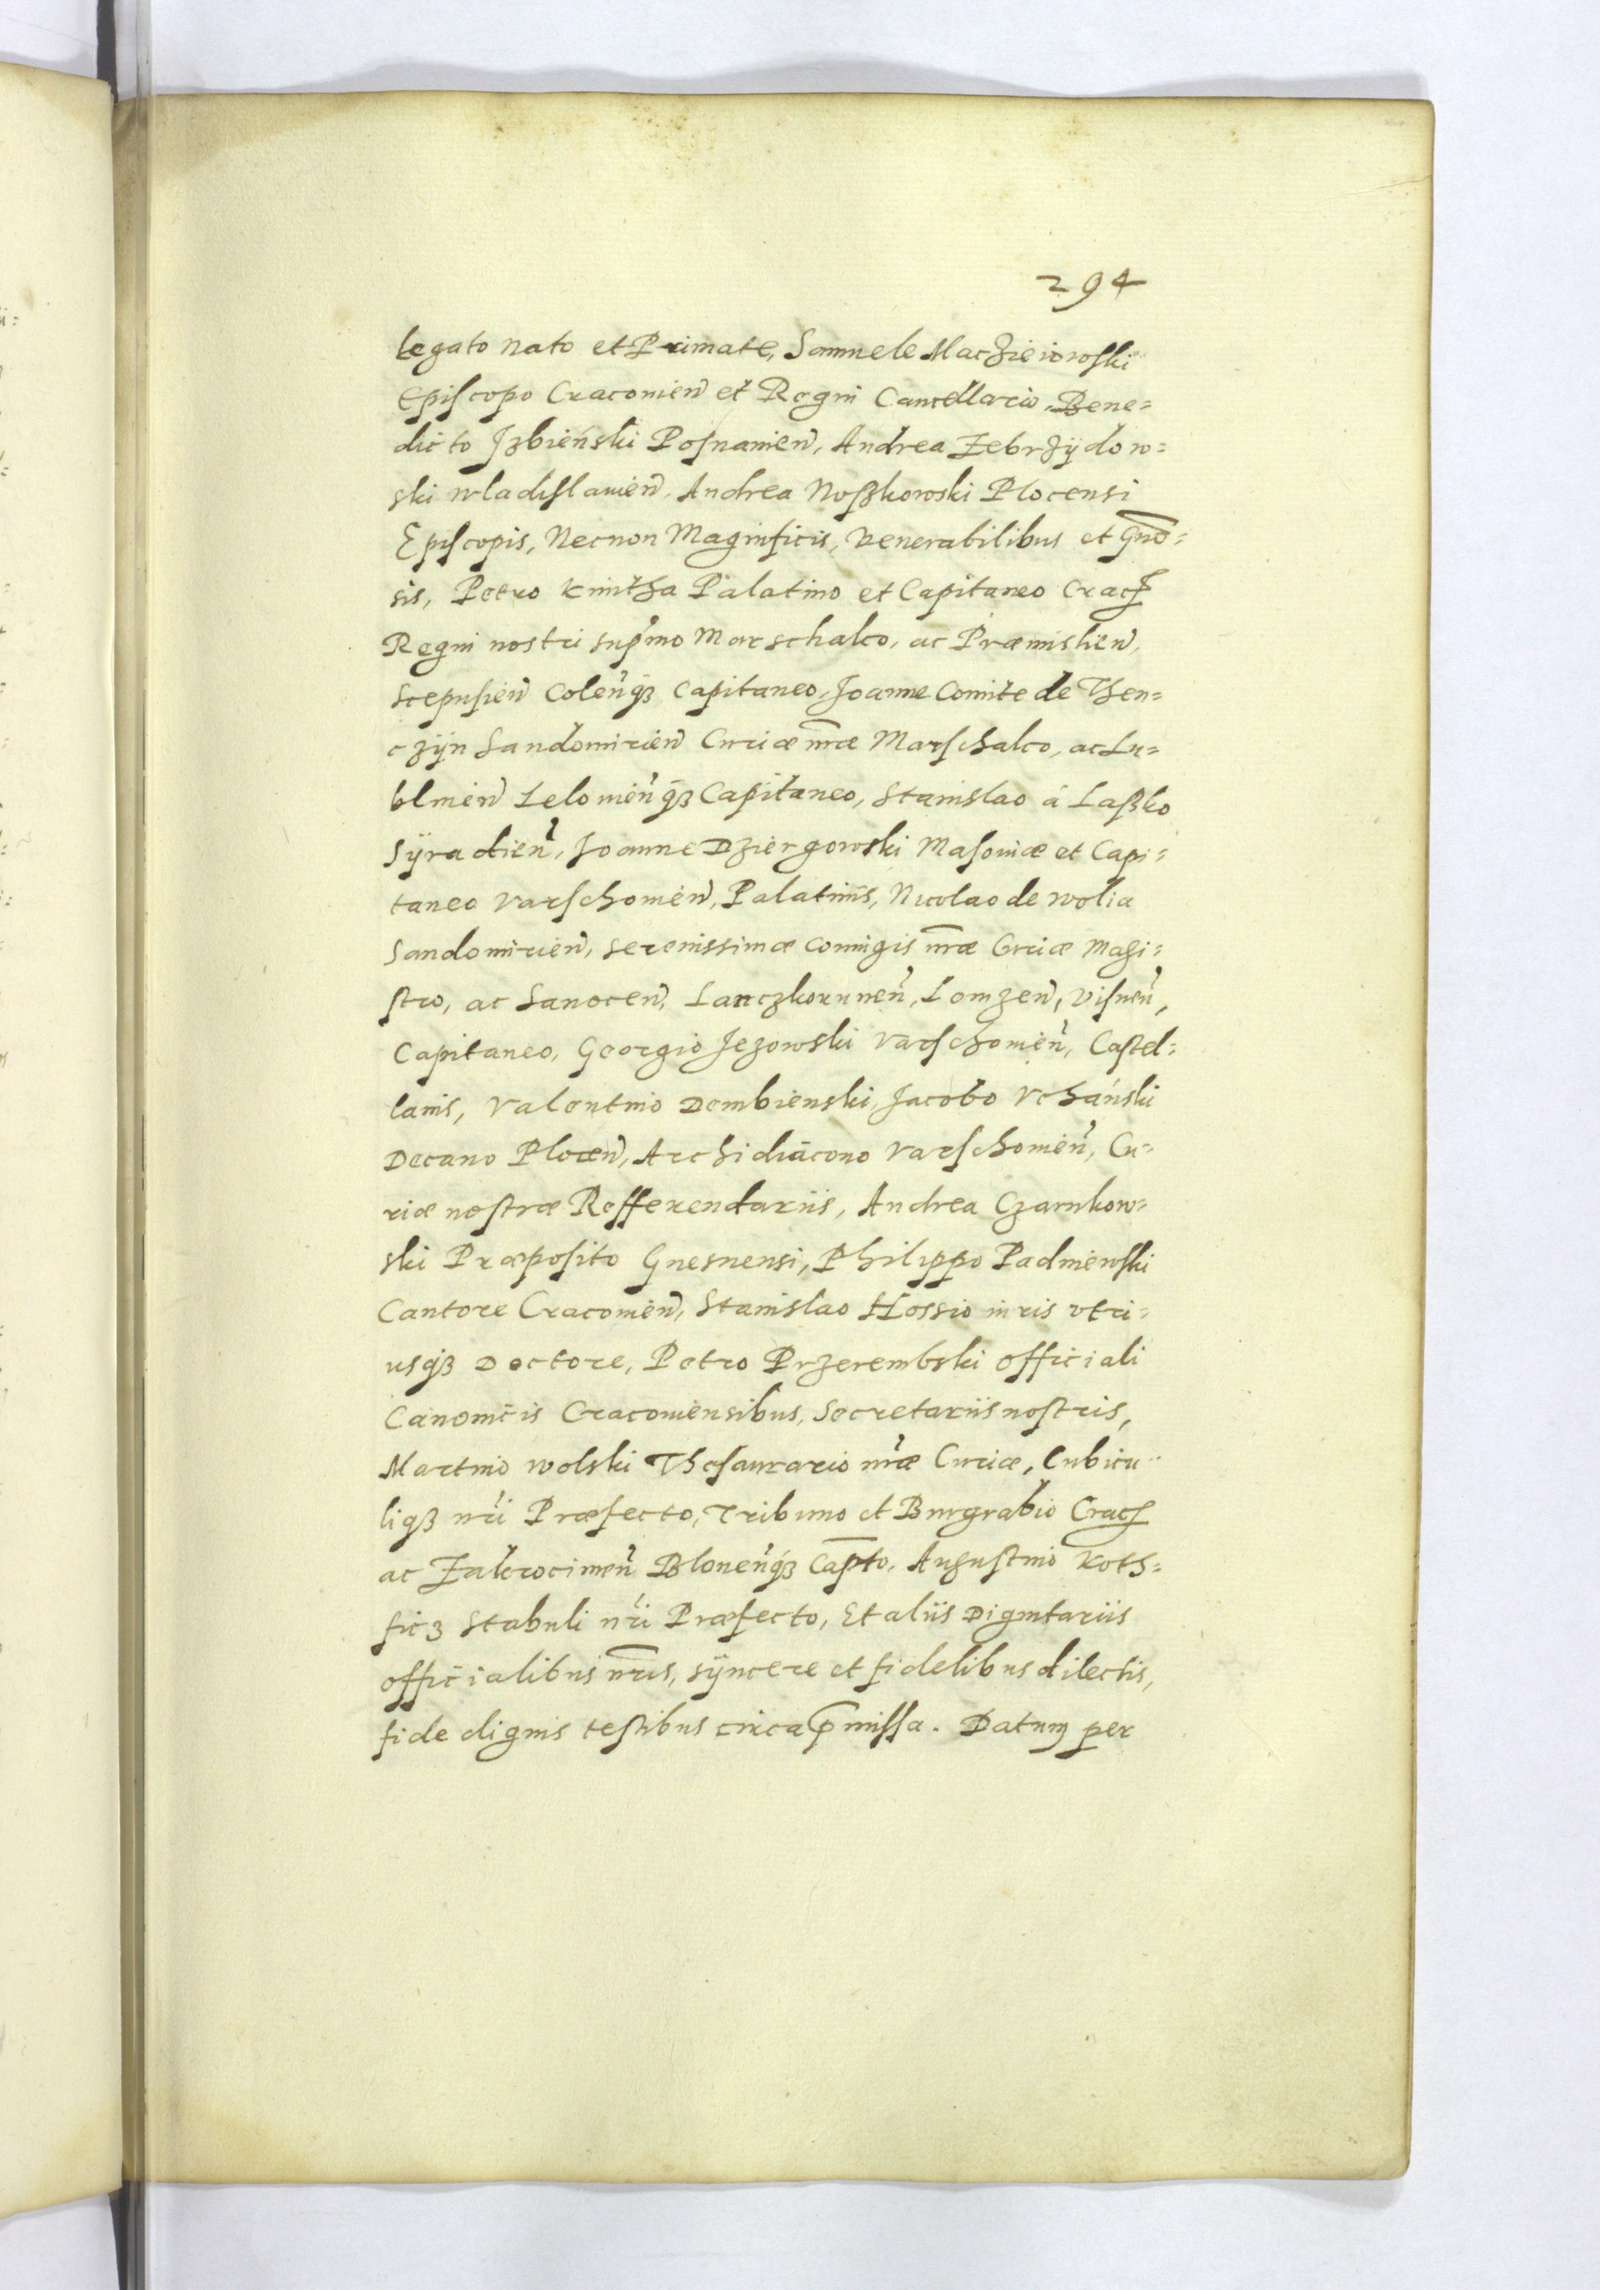 294
legato nato et Primate, Samuele Maczieiowski
Episcopo Cracouien̄ et Regni Cancellario, Bene=
dicto Jzbieński Posnanien̄, Andrea Zebrzÿdow=
ski wladislauien̄, Andrea Noszkowski Plocensi
Episcopis, Necnon Magnificis, Venerabilibus et Gn̄o=
sis, Petro Kmitha Palatino et Capitaneo Crac̄
Regni nostri sup̄mo Marschalco, ac Præmislien̄,
Scepusien̄ Colen̄qȝ Capitaneo, Joanne Comite de Then=
czÿn Sandomirien̄ Curiæ nr̄æ Marschalco, ac Lu=
blinen̄ Lelouien̄qȝ Capitaneo, Stanislao á Laszko
Sÿradien̄, Joanne Dziergowski Masouiæ et Capi=
taneo Varschouien̄, Palatinis, Nicolao de wolia
Sandomirien̄, Serenissimæ Coniugis nr̄æ Curiæ Magi=
stro, ac Sanocen̄, Lanczkorunen̄, Lomzen̄, Visnen̄,
Capitaneo, Georgio Jezowski Varschouien̄, Castel=
lanis, Valentino Dembienski, Jacobo Vchański
Decano Plocen̄, Archidiacono Varschouien̄, Cu=
riæ nostræ Refferendariis, Andrea Czarnkow=
ski Præposito Gnesnensi, Philippo Padniewski
Cantore Cracouien̄, Stanislao Hossio iuris vtri=
usqȝ Doctore, Petro Przerembski officiali
Canonicis Cracouiensibus, Secretariis nostris,
Martino wolski Thesaurario nr̄æ Curiæ, Cubicu=
liqȝ nr̄i Præfecto, Tribuno et Burgrabio Crac̄
ac Zakrocimen̄ Blonen̄qȝ Cap̄to, Augustino Koth=
ficz Stabuli nr̄i Præfecto, Et aliis Dignitariis
officialibus nr̄is, sÿncere et fidelibus dilectis,
fide dignis testibus circa p̄missa. Datum per